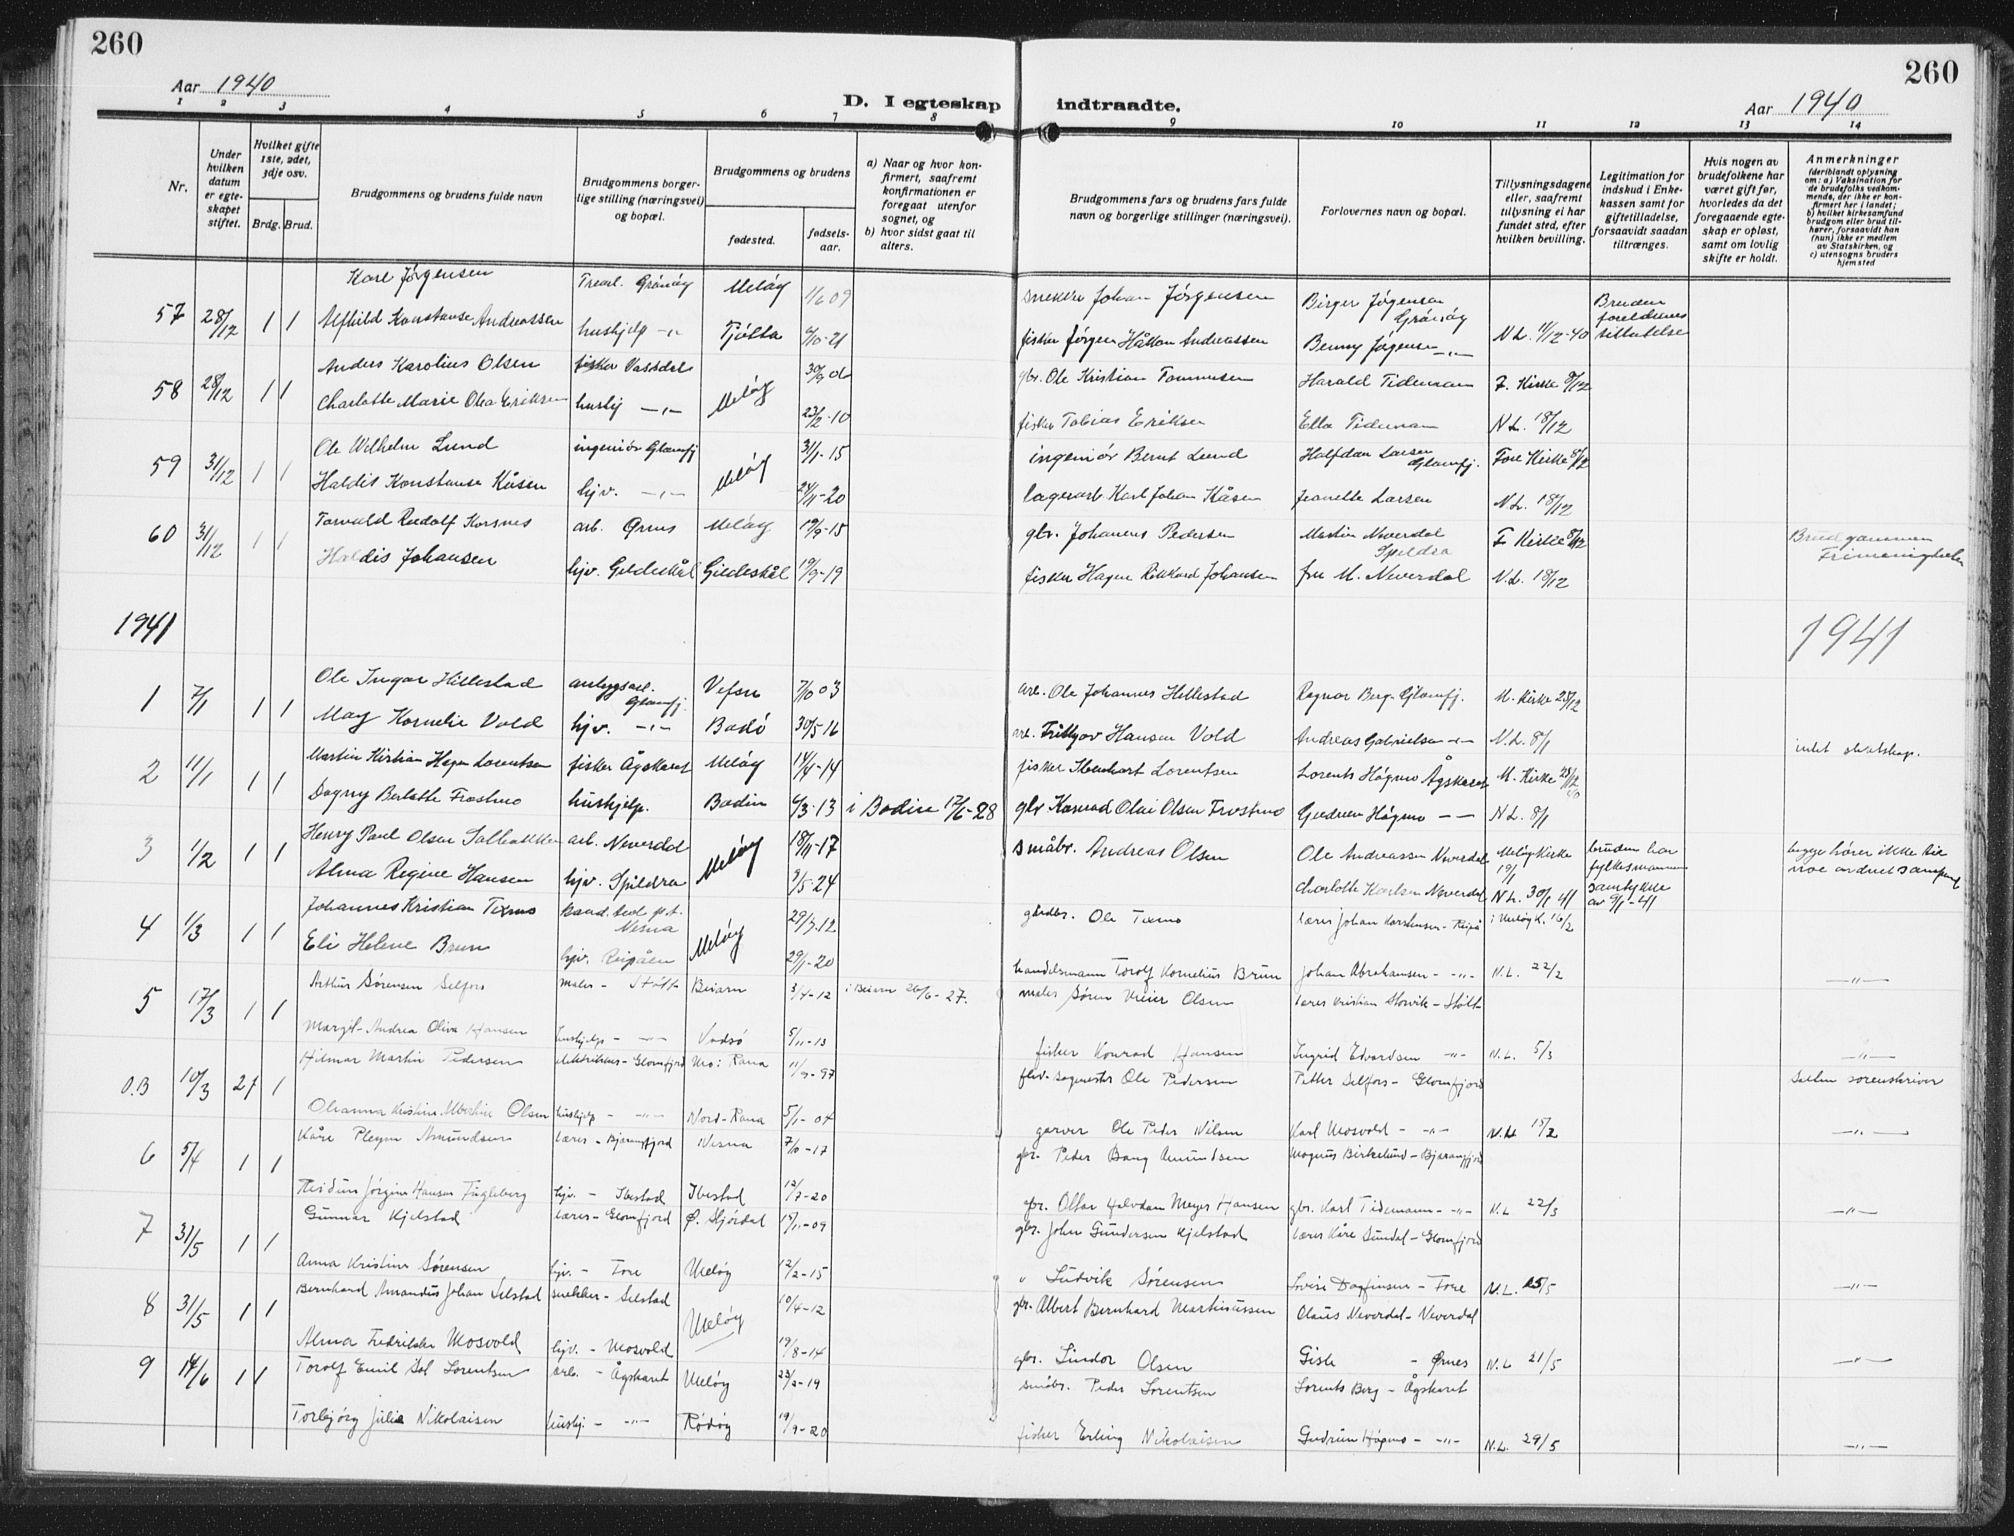 260
260
Aar 1940
D. I egteskap indtraadte.
Aar 1940
1 2 3 4 5 6 7 8 9 10 11 12 13 14
Nr.
Under hvilken datum er egteskapet stiftet.
Hvilket gifte 1ste, 2det, 3dje osv.
Brdg. Brud.
Brudgommens og brudens fulde navn
Brudgommens borgerlige stilling (næringsvei) og bopæl.
Brudgommens og brudens
fødested.
fødselsaar.
a) Naar og hvor konfirmert, saafremt konfirmationen er foregaat utenfor sognet, og
b) hvor sidst gaat til alters.
Brudgommens fars og brudens fars fulde navn og borgerlige stillinger (næringsvei).
Forlovernes navn og bopæl.
Tillysningsdagene eller, saafremt tillysning ei har fundet sted, efter hvilken bevilling.
Legitimation for indskud i Enkekassen samt for giftetilladelse, forsaavidt saadan tiltrænges.
Hvis nogen av brudefolkene har været gift før, hvorledes da det foregaaende egteskap er opløst, samt om lovlig skifte er holdt.
Anmerkninger (deriblandt oplysning om: a) Vaksination for de brudefolks vedkommende, der ikke er konfirmert her i landet; b) hvilket kirkesamfund brudgom eller brud tilhører, forsaavidt han (hun) ikke er medlem av Statskirken, og c) utensogns bruders hjemsted
57 28/12 1 1 Karl Jørgensen Grønøy Meløy 1/6 09 snekker Johan Jørgensen Birger Jørgensen Grønøy Bruden foreldrenes
Alfhild Konstanse Andreassen hushjelp -"- Tjøtta 4/10-21 fisker Jørgen Håkon Andreassen Benny Jørgensen -"- N.L. 11/12-40 tillatelse
58 28/12 1 1 Anders Karolius Olsen fisker Vassdal Meløy 30/9 06 gbr. Ole Kristian Tommesen Harald Tideman F. Kirke 8/12
Charlotte Marie Olea Eriksen -"- 23/2-10 fisker Tobias Eriksen Ella Tideman N.L. 18/12
59 31/12 1 1 Ole Wilhelm Lund ingeniør Glomfj. Meløy 31/1-15 ingeniør Bernt Lund Halfdan Larsen Glomfj. Fore Kirke 8/12
Haldis Konstanse Kåsen hjv. -"- 24/11-20 lagerarb Karl Johan Kåsen Jeanette Larsen N.L. 18/12
60 31/12 1 1 Torvald Rudolf Korsnes arb. Ørnes Meløy 19/9-15 gbr. Johannes Pedersen Martin Neverdal Spildra F Kirke 8/12 Brudgommen
Haldis Johansen hjv. Gildeskål Gildeskål 19/9-19 fisker Hagen Rikhard Johansen fru M. Neverdal N.L. 18/12
1941
1941
1 7/1 1 1 Ole Ingvar Hillestad anleggsarb. Glomfj. Vefsn 7/10 03 arb. Ole Johannes Hillestad Ragnar Berg - Glomfj. M. Kirke 28/12
May Kornelie Vold hjv. -"- Bodø 30/5 16 arb. Frithjov Hansen Vold Andreas Gabrielsen -"- N.L. 8/1 intet slektskap.
2 11/1 1 1 Martin Kristian Hagen Lorentsen fisker Ågskaret Meløy 14/4-14 fisker Lorentsen Lorents Høgmo Ågskaret M. Kirke 28/12
Dagny Berlotte Frostmo hushjelp. Bodin 4/3-13 i Bodin 17/6-28 gbr Konrad Olai Olsen Frostmo Gudrun Høgmo -- N.L. 8/1
3 1/2 1 1 Henry Paul Olsen arb. Neverdal Meløy 18/11-17 småbr. Andreas Olsen Ole Andreassen Neverdal Meløy Kirke 19/1 bruden har fylkesmannen begge hører ikke til
Alma Regine Hansen hjv. Spildra 9/5-24 Charlotte Karlsen Neverdal N.L. 30/1 41 samtykke av 9/1-41 noe annet samfund
4 1/3 1 1 Johannes Kristian Texmo kand. teol p.t. Nesna Meløy 29/3.12 gårdbr. Ole Texmo lærer Johan Karstensen - Reipå i Meløy K. 16/2
Eli Helene Brun hjv. Reipåen 29/1-20 handelsmann Torolf Kornelius Brun Johan Abrahamsen - -"- N.L. 22/2 -"-
5 17/3 1 1 Arthur Sørensen Selfors maler - Støtt Beiarn 3/4-12 i Beiarn 26/6-27. maler Søren Meier Olsen lærer Kristian Storvik - Støtt
Margit Andrea Oliva Hansen hushjelp - -"- Vadsø 5/11-13 fisker Konrad Hansen Ingrid Edvardsen -"- N.L. 5/3 -"-
O.B 10/3 2f 1 Hilmar Martin Pedersen elektriker - Glomfjord Mo: Rana 11/9-97 Ole Pedersen Petter Selfors - Glomfjord sorenskriver
Oleanna Kristine Albertine Olsen hushjelp - -"- Nord-Rana 5/1-04 garver Ole Peder Nilsen Karl Mosvold - -"- N.L. 15/2 -"-
6 5/4 1 1 Kåre Pleym Amundsen lærer - Bjærangfjord Nesna 7/10-17 gbr. Peder Bang Amundsen Magnus Birkelund - Bjærangfjord
Reidun Jørgine Hansen Fugleberg hjv. - Ibestad Ibestad 12/7-20 gbr. Ottar Halvdan Meyer Hansen gbr. Karl Tidemann - -"- N.L. 22/3 -"-
7 31/5 1 1 Gunnar Kjelstad lærer - Glomfjord Ø. Stjørdal 15/11-09 gbr. John Gundersen Kjelstad lærer Kåre Sundal - Glomfjord
Anna Kristine Sørensen hjv. - Fore Meløy 12/2-15 " Ludvik Sørensen Dagfinsen - Fore N.L. 25/5 -"-
8 31/5 1 1 Bernhard Amandus Johan Selstad snekker - Selstad Meløy 10/4-12 gbr. Albert Bernhard Martinussen Claus Neverdal - Neverdal
Alma Fredrikke Mosvold hjv. - Mosvold 19/8-14 gbr. Sindor Olsen Giske - Ørnes N.L. 21/5 -"-
9 14/6 1 1 Torolf Emil Lorentsen arb. - Ågskaret Meløy 23/2-19 småbr. Peder Lorentsen Lorents Berg - Ågskaret
Torbjørg Julie Nikolaisen hushj. - -"- Rødøy 19/9-20 fisker Erling Nikolaisen Gudrun Høgmo - -"- N.L. 29/5 -"-